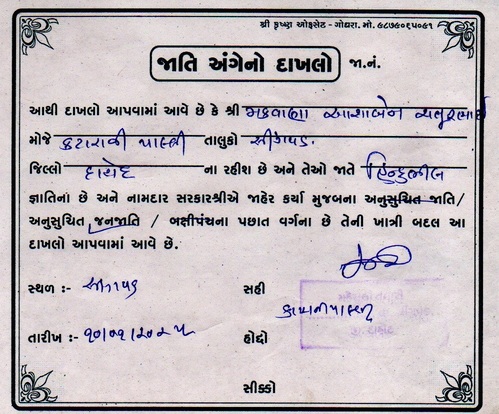 શ્રી કૃષ્ણ ઓફસેટ - ગોધરા. મો. ૯૮૭૯૦૬૫૦૯૧
જાતિ અંગેનો દાખલો જા.નં.
આથી દાખલો આપવામાં આવે છે કે શ્રી મકવાણા આશાબેન
મોજે કટારાની પાલ્લી તાલુકો સીંગવડ
જિલ્લો દાહોદ ના રહીશ છે અને તેઓ જાતે હિન્દુભીલ
જ્ઞાતિનો છે અને નામદાર સરકારશ્રીએ જાહેર કર્યા મુજબના અનુસુચિત જાતિ/
અનુસુચિત જનજાતિ / બક્ષીપંચના પછાત વર્ગના છે તેની ખાત્રી બદલ આ
દાખલો આપવામાં આવે છે.
સ્થળ :- સીંગવડ સહી
તારીખ :- હોદ્દો
સીક્કો